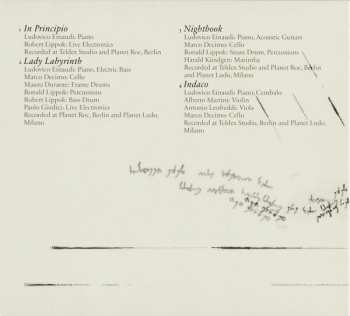 1 In Principio
Ludovico Einaudi: Piano
Robert Lippok: Live Electronics
Recorded at Teldex Studio and Planet Roc, Berlin
2 Lady Labyrinth
Ludovico Einaudi: Piano, Electric Bass
Marco Decimo: Cello
Mauro Durante: Frame Drums
Ronald Lippok: Percussions
Robert Lippok: Bass Drum
Paolo Giudici: Live Electronics
Recorded at Planet Roc, Berlin and Planet Ludo,
Milano
3 Nightbook
Ludovico Einaudi: Piano, Acoustic Guitars
Marco Decimo: Cello
Ronald Lippok: Snare Drum, Percussions
Harald Kündgen: Marimba
Recorded at Teldex Studio and Planet Roc, Berlin
and Planet Ludo, Milano
4 Indaco
Ludovico Einaudi: Piano, Cembalo
Alberto Martini: Violin
Antonio Leofreddi: Viola
Marco Decimo: Cello
Recorded at Teldex Studio, Berlin and Planet Ludo,
Milano